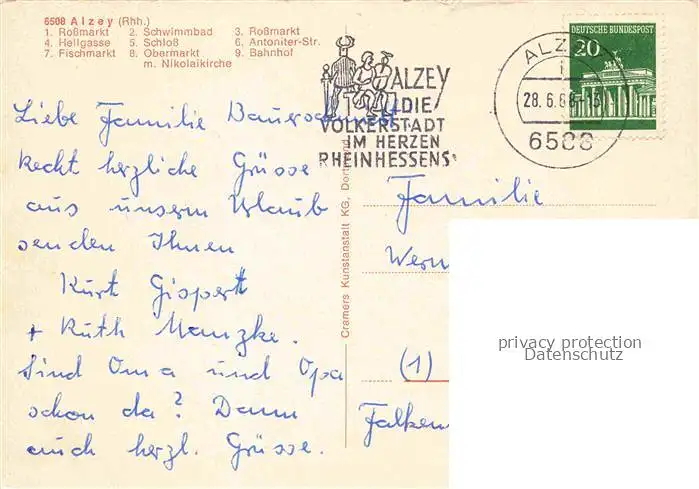 6508 Alzey (Rhh.)
1. Roßmarkt 2. Schwimmbad 3. Roßmarkt
4. Hellgasse 5. Schloß 6. Antoniter-Str.
7. Fischmarkt 8. Obermarkt 9. Bahnhof
m. Nikolaikirche
ALZEY
DIE
VOLKERSTADT
IM HERZEN
RHEINHESSENS
ALZEY
28.6.68-13
6508
DEUTSCHE BUNDESPOST
20
Liebe Familie
Recht herzliche Grüsse
aus unserm Urlaub
senden Ihnen
Kurt Gispert
+ Ruth Manzke.
Sind Oma und Opa
schon da? Dann
auch herzl. Grüsse.
Cramers Kunstanstalt KG, Dortmund
Familie
Wern
(1)
Falken
privacy protection
Datenschutz